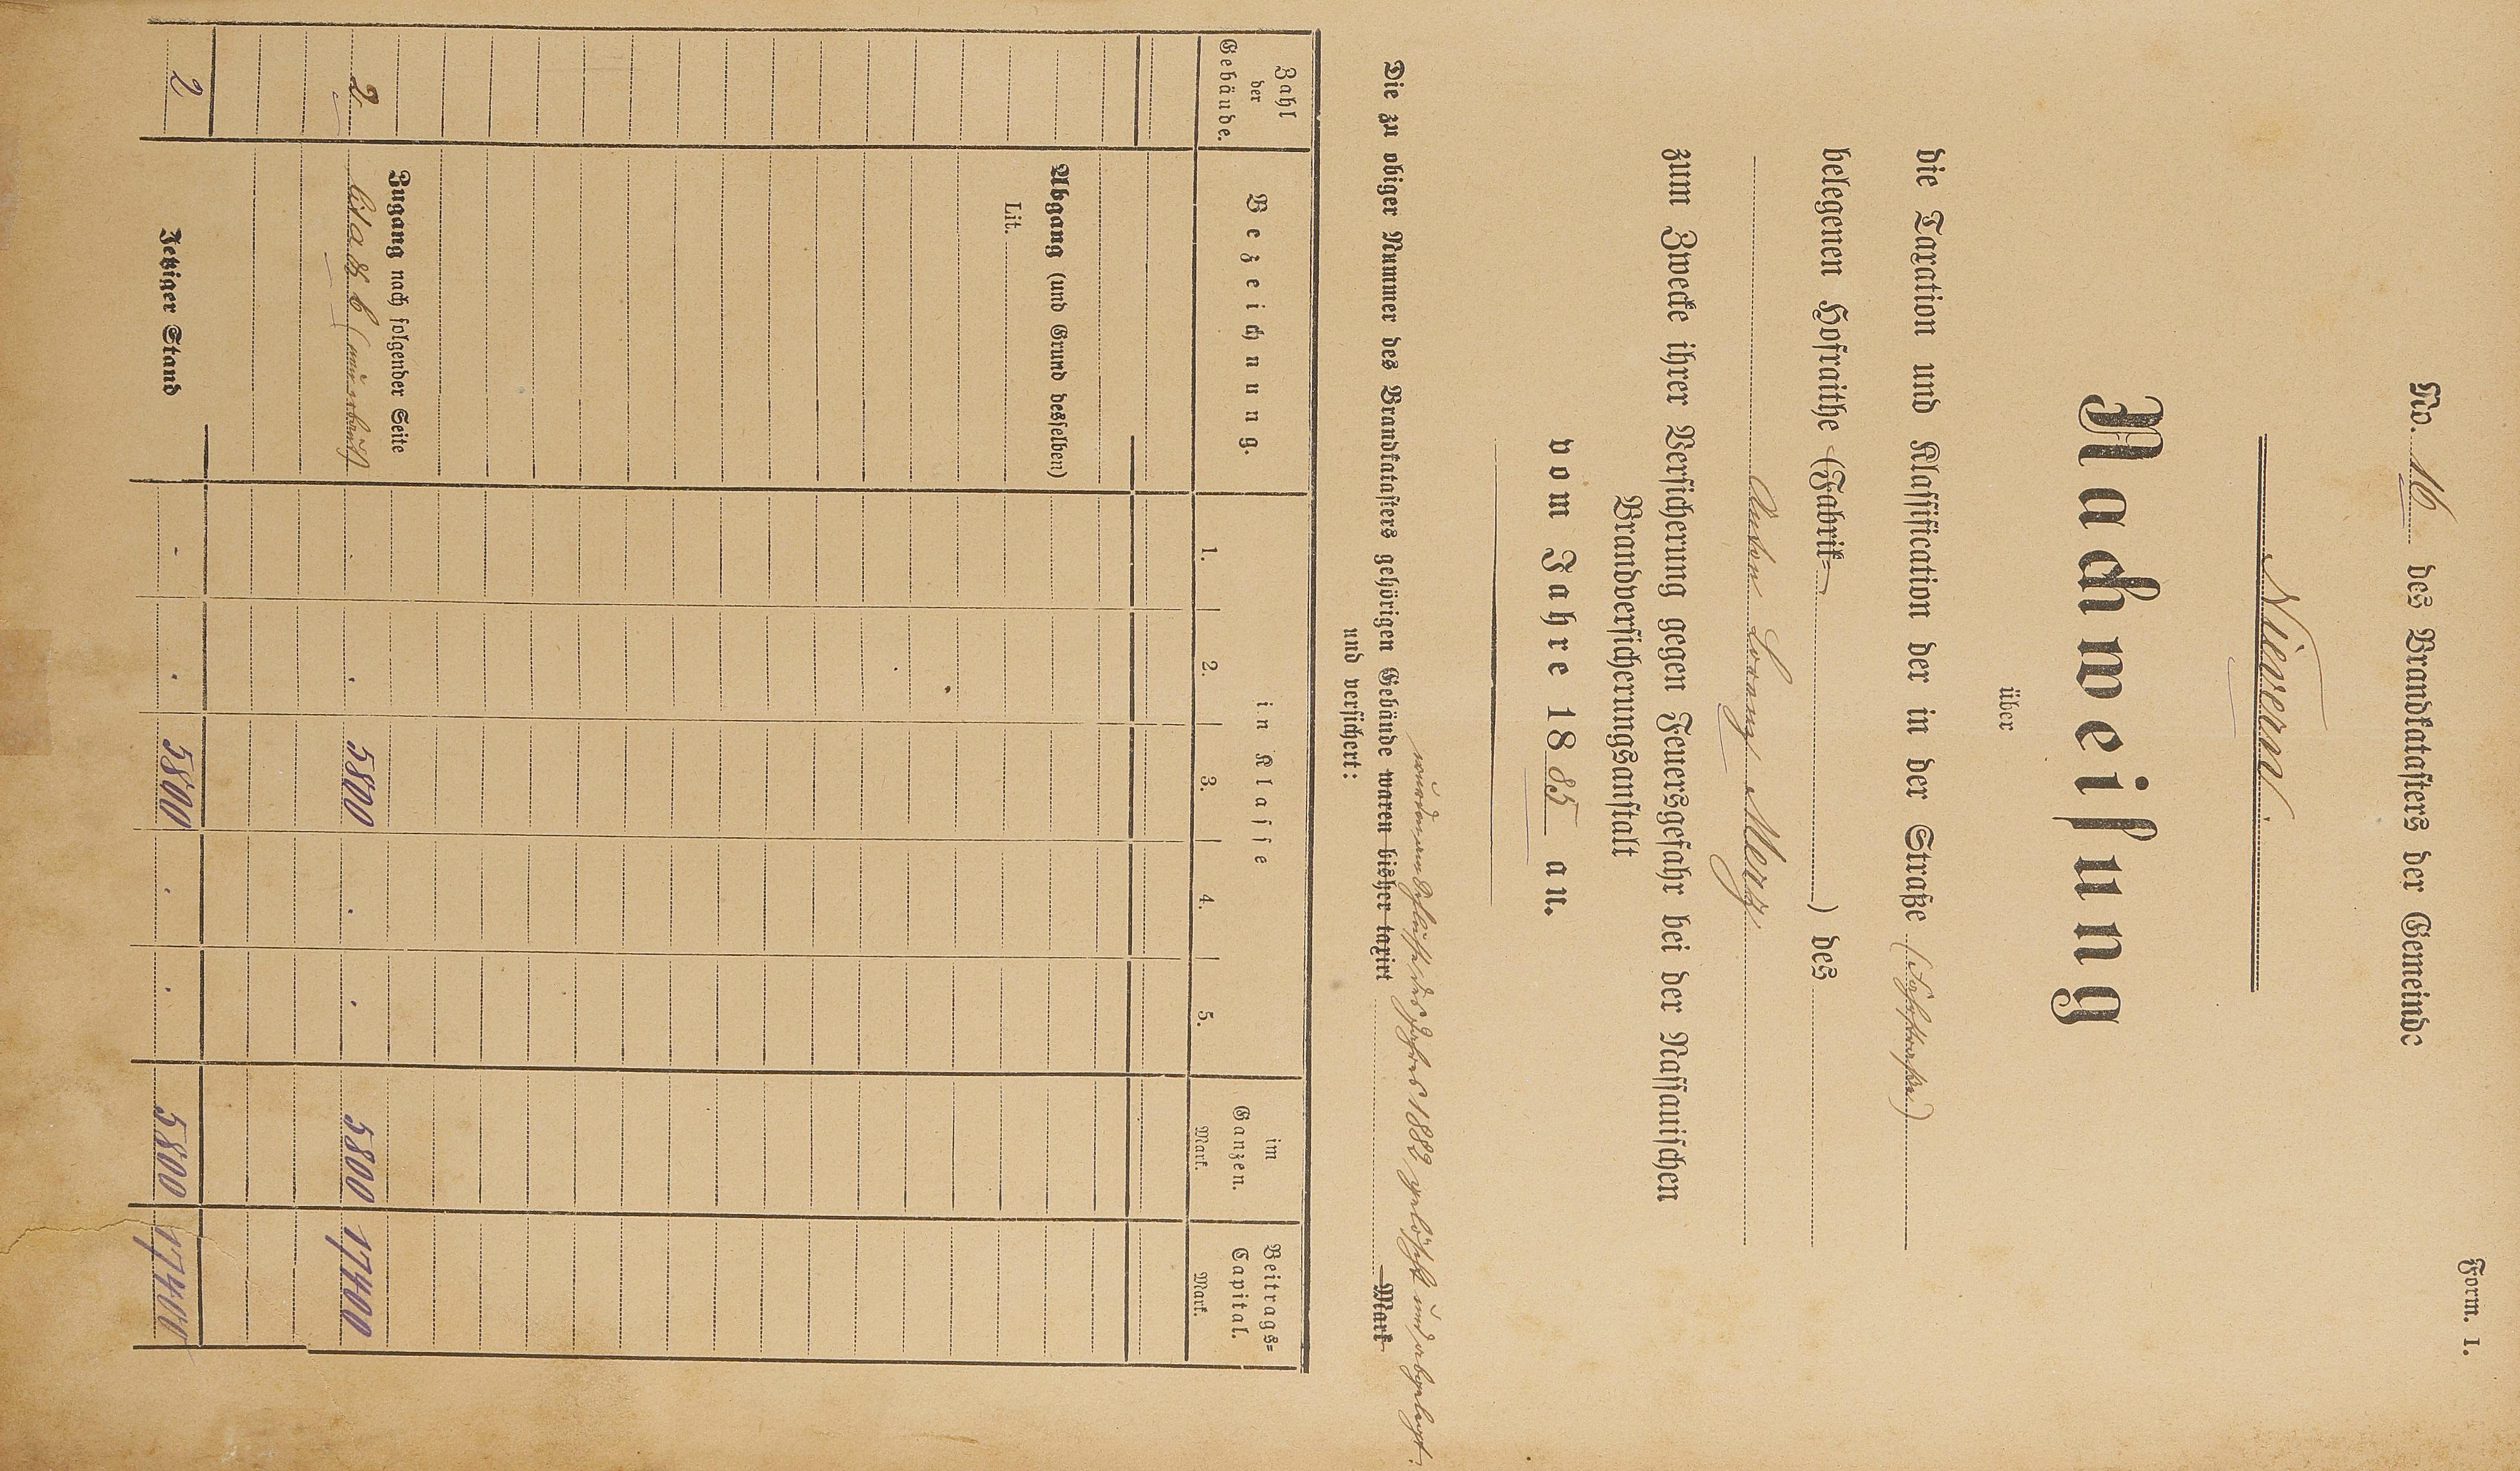 Form. I.
No. 16 des Brandkatasters der Gemeinde
Nievern.
Nachweisung
über
die Taxation und Klassification der in der Straße
belegenen Hofraithe (Fabrik= ) des
Anton Merz
zum Zwecke ihrer Versicherung gegen Feuersgefahr bei der Nassauischen
Brandversicherungsanstalt
vom Jahre 1885 an.
wurden am Schlusse des Jahres 1882 gelöscht und abgelegt.
Die zu obiger Nummer des Brandkatasters gehörigen Gebäude waren bisher taxirt Mark
und versichert:
Zahl der Gebäude. Bezeichnung. in Klasse im Ganzen. Beitrags=Capital.
1. 2. 3. 4. 5. Mark. Mark.
Abgang (und Grund desselben)
Lit.
Zugang nach folgender Seite
2 lit a & b (neu erbaut) . . 5800 . . 5800 17400
2 Jetziger Stand - . 5800 . . 5800 17400